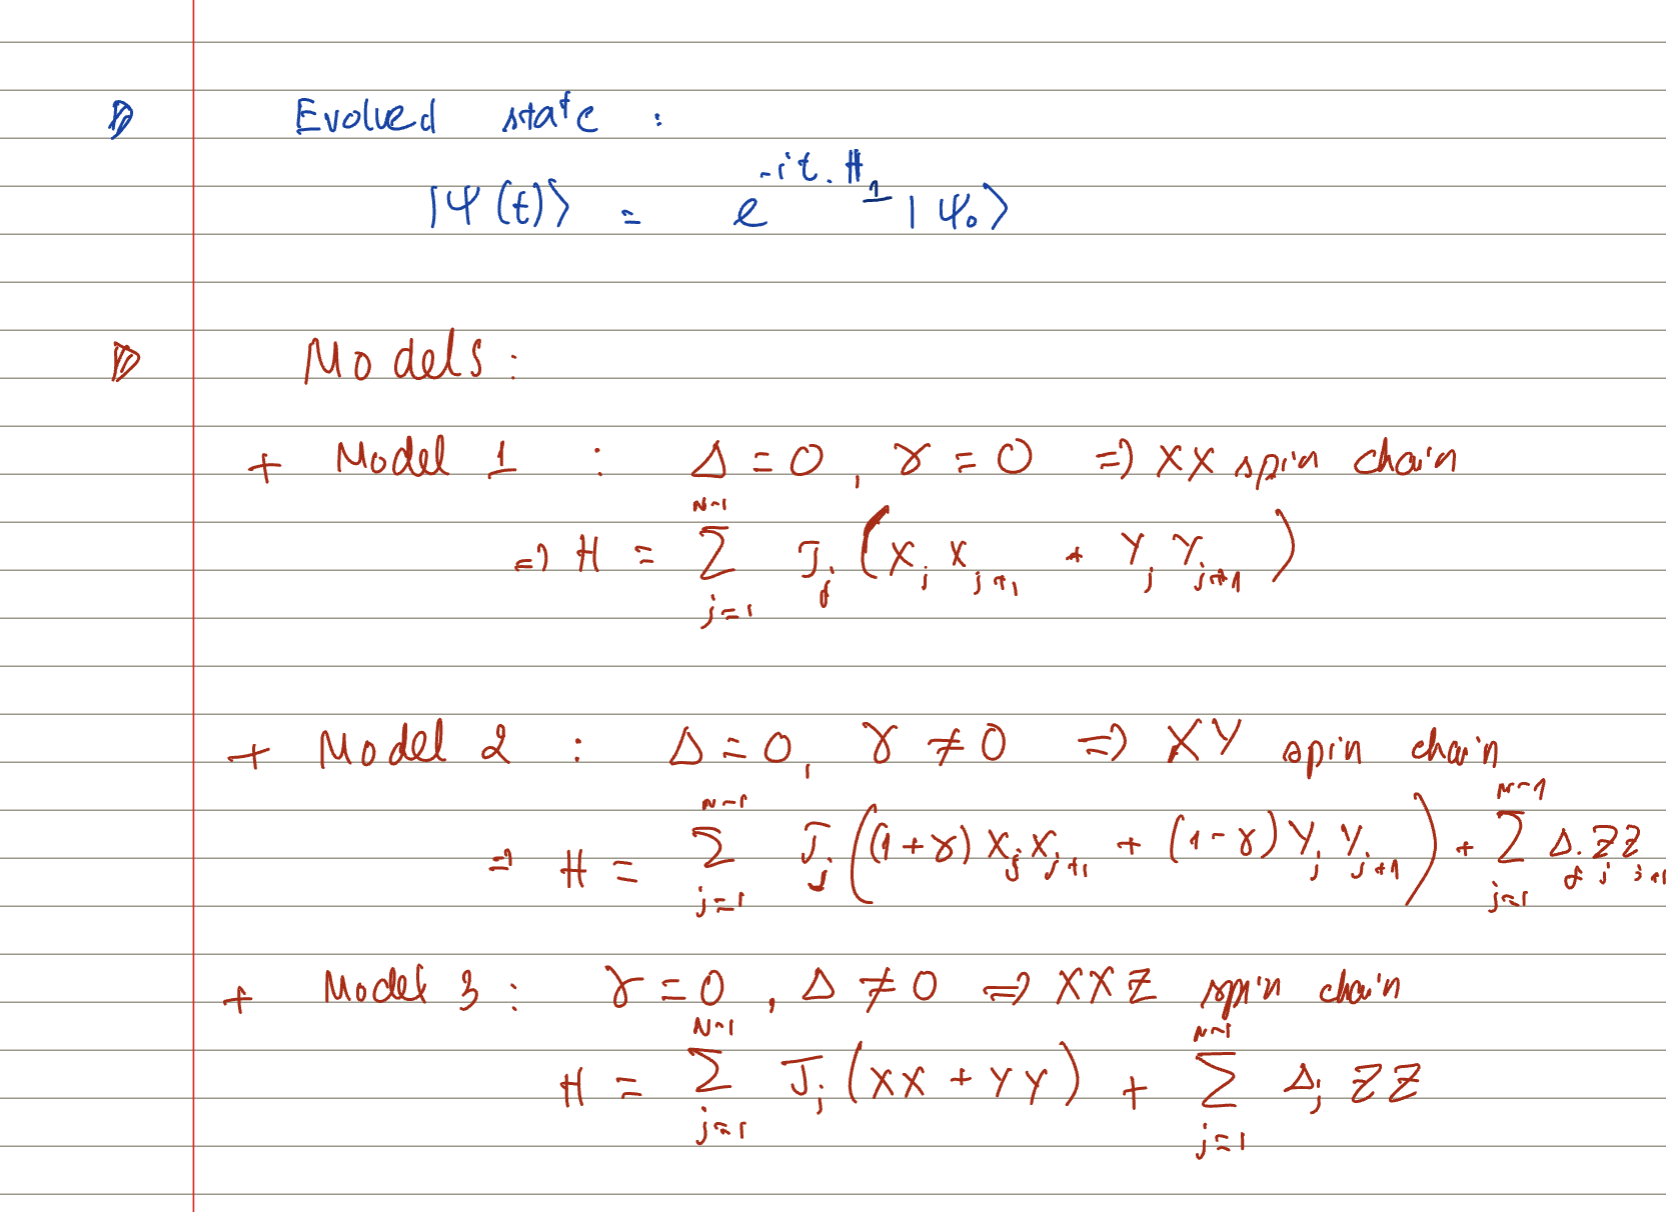 Evolved state :
|Ψ(t)⟩ = e^{-it.H_1} |Ψ₀⟩
Models :
+ Model 1 : Δ = 0 , γ = 0 ⇒ XX spin chain
⇒ H = Σ_{j=1}^{N-1} J_j ( X_j X_{j+1} + Y_j Y_{j+1} )
+ Model 2 : Δ = 0, γ ≠ 0 ⇒ XY spin chain
⇒ H = Σ_{j=1}^{N-1} J_j ( (1+γ) X_j X_{j+1} + (1-γ) Y_j Y_{j+1} ) + Σ_{j=1}^{N-1} Δ_j Z_j Z_{j+1}
+ Model 3 : γ = 0 , Δ ≠ 0 ⇒ XXZ spin chain
H = Σ_{j=1}^{N-1} J_j ( XX + YY ) + Σ_{j=1}^{N-1} Δ_j ZZ